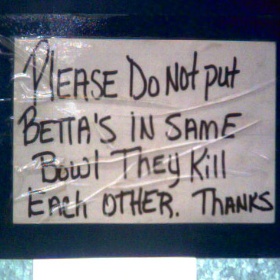 PLEASE DO NOT put
BETTA'S IN SAME
Bowl They Kill
EACH OTHER. THANKS